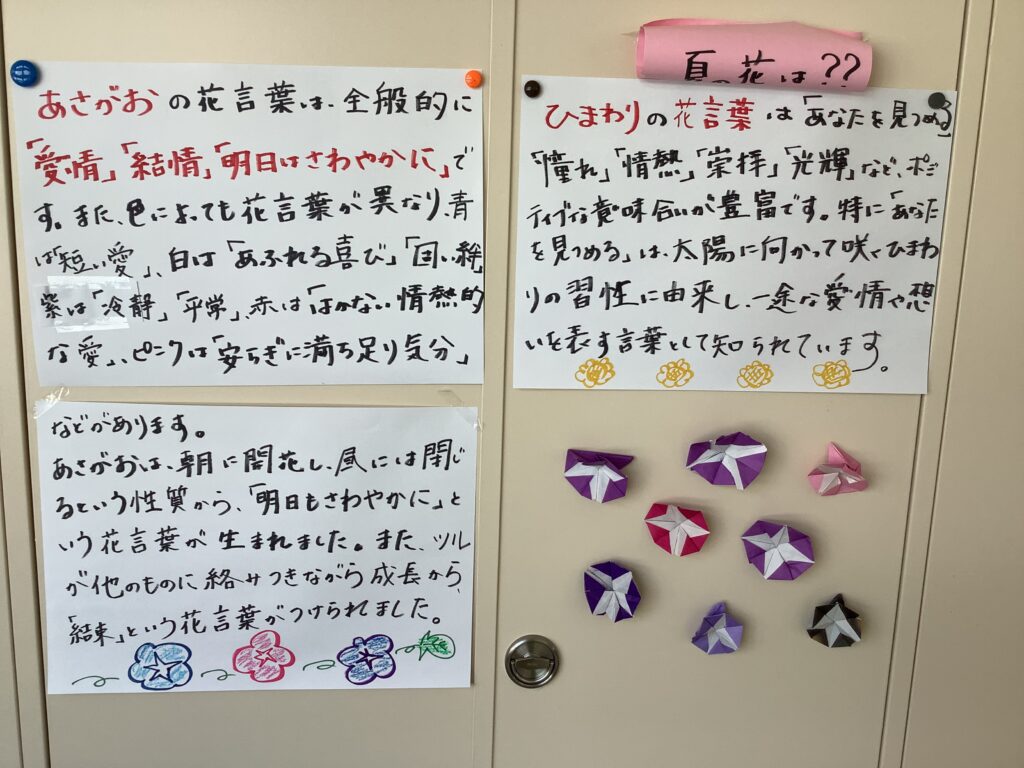 あさがおの花言葉は、全般的に
「愛情」「結情」「明日はさわやかに」で
す。また、色によっても花言葉が異なり、青
は「短い愛」、白は「あふれる喜び」「固い絆」
紫は「冷静」「平常」、赤は「はかない情熱的
な愛」、ピンクは「安らぎに満ち足り気分」
などがあります。
あさがおは、朝に開花し、風には閉じ
るという性質から、「明日もさわやかに」と
いう花言葉が生まれました。また、ツル
が他のものに絡みつきながら成長から、
「結束」という花言葉がつけられました。
夏の花は??
ひまわりの花言葉は「あなたを見つめる」
「憧れ」「情熱」「崇拝」「光輝」など、ポジ
ティブな意味合いが豊富です。特に「あなた
を見つめる」は、太陽に向かって咲くひまわ
りの習性に由来し、一途な愛情や想
いを表す言葉として知られています。